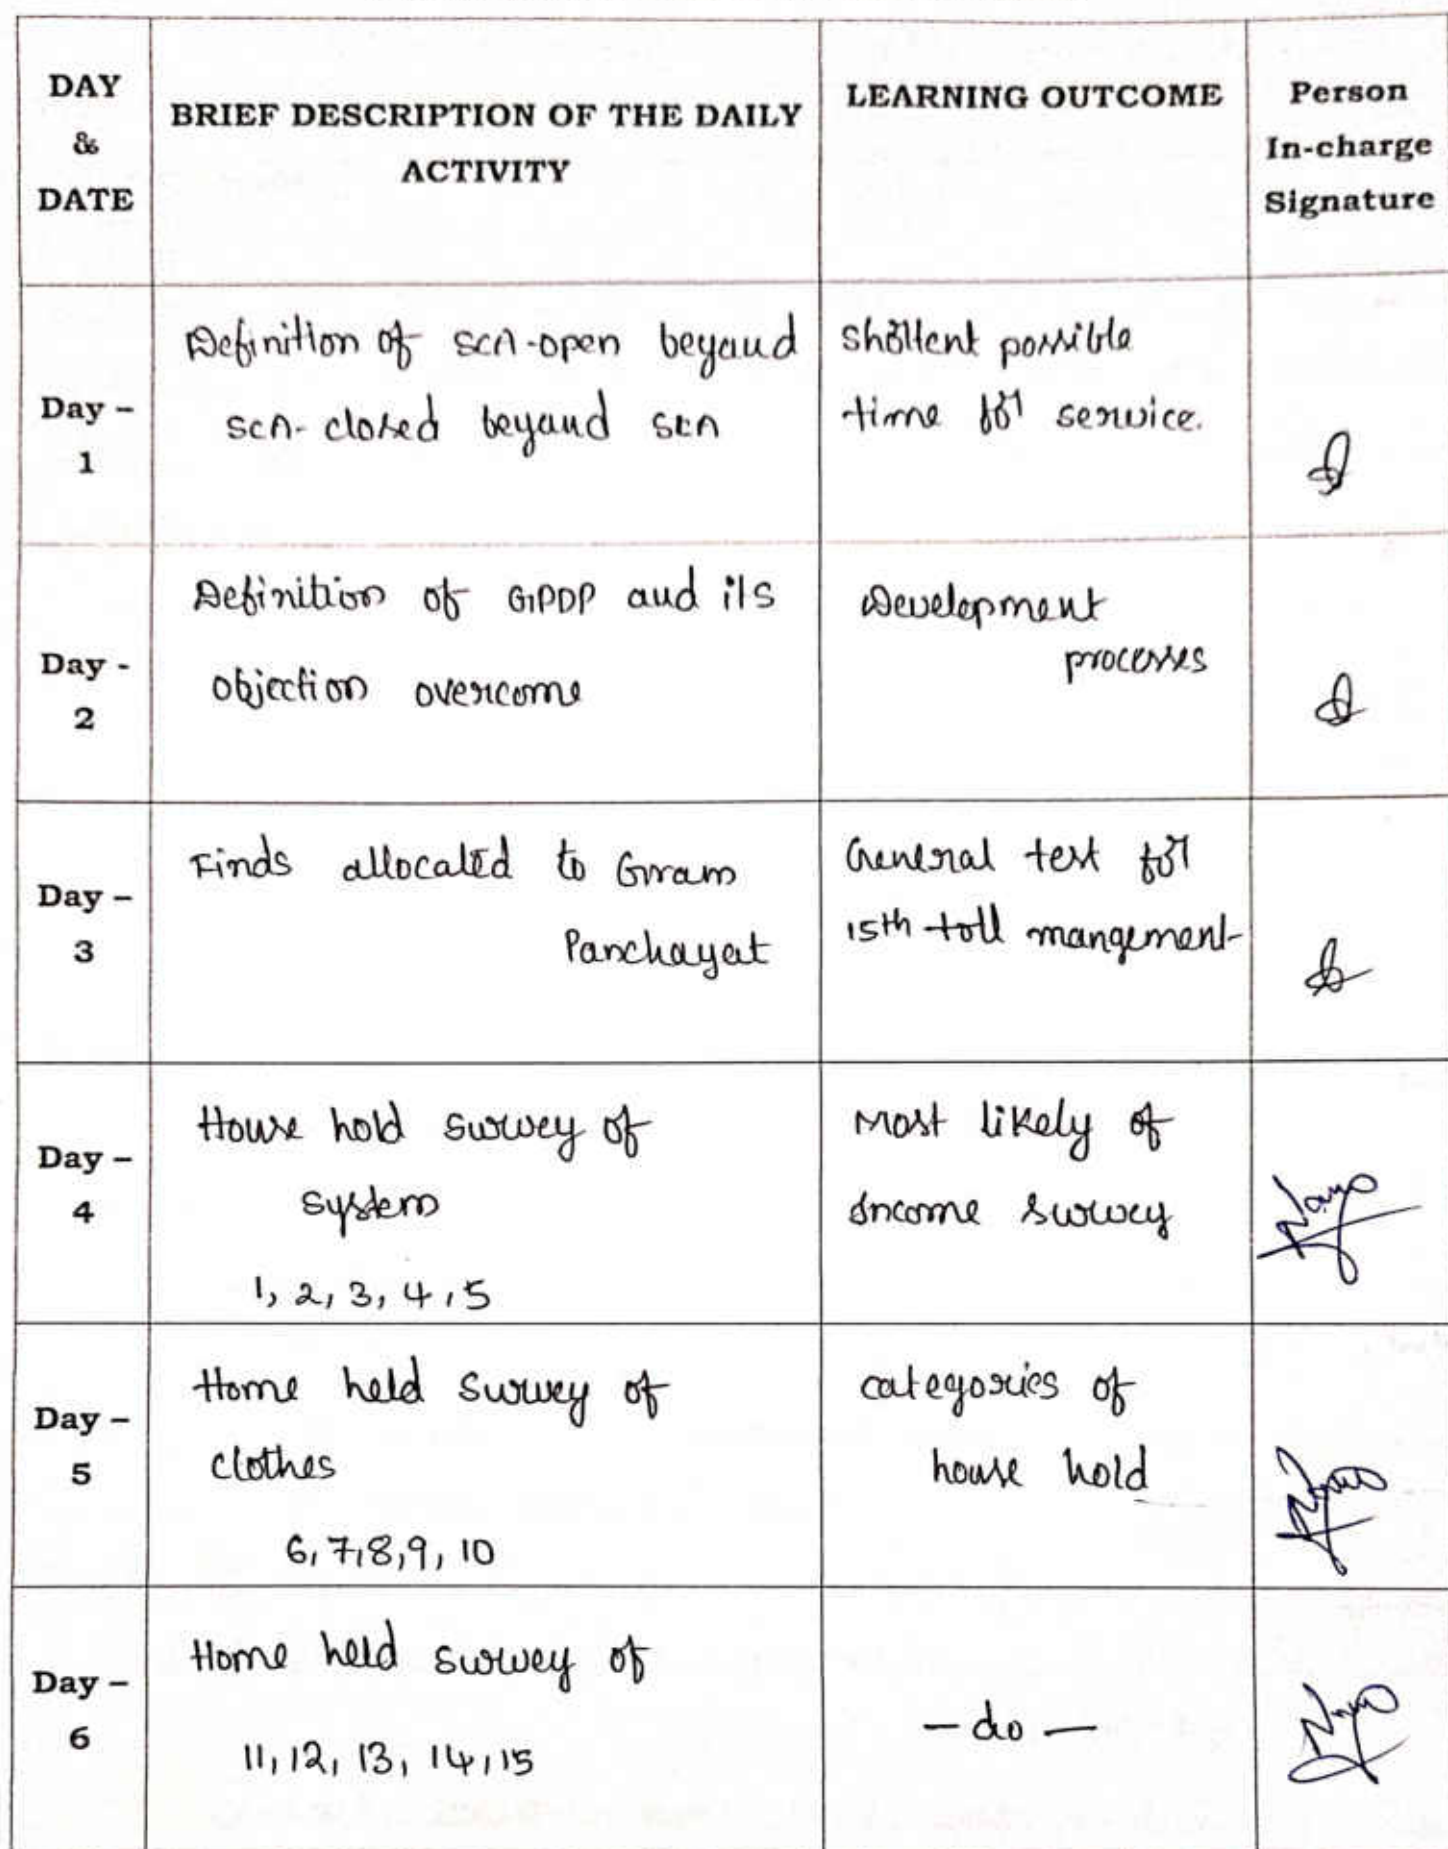 DAY
&
DATE
BRIEF DESCRIPTION OF THE DAILY
ACTIVITY
LEARNING OUTCOME
Person
In-charge
Signature
Day –
1
Definition of SCA-open beyaud
SCA-closed beyaud SCA
Shöllent possible
time for service.
Day -
2
Definition of GPDP and its
objection overcome
Development
processes
Day –
3
Finds allocated to Gram
Panchayat
General test for
15th toll mangement
Day –
4
House hold survey of
system
1, 2, 3, 4, 5
Most likely of
Income survey
Day –
5
Home held survey of
clothes
6, 7, 8, 9, 10
categories of
house hold
Day –
6
Home held survey of
11, 12, 13, 14, 15
— do —